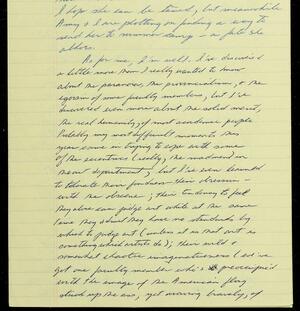 I hope she can be tamed, but meanwhile
Amy & I are plotting on finding a way to
send her to summer camp — a fate she
abhors.
As for me, I'm well. I've discovered
a little more than I really wanted to know
about the paranoia, the provincialism, & the
egoism of some faculty members, but I've
discovered even more about the solid merit,
the real humanity, of most academic people.
Probably my most difficult moments this
year came in trying to cope with some
of the eccentrics (really, the madmen) in
the art department, but I've even learned
to tolerate their
with the obscene; their tendency to feel
they alone can judge art while at the same
time they admit they have no standards by
which to judge art (unless it is that art is
something which artists do); their wild &
somewhat chaotic imaginativeness (we've
got one faculty member who's preoccupied
with the image of the American flag
stuck up the ass, yet moving bravely, if